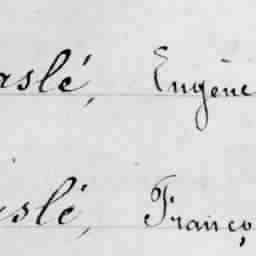 aslé, Eugène
islé, Franço